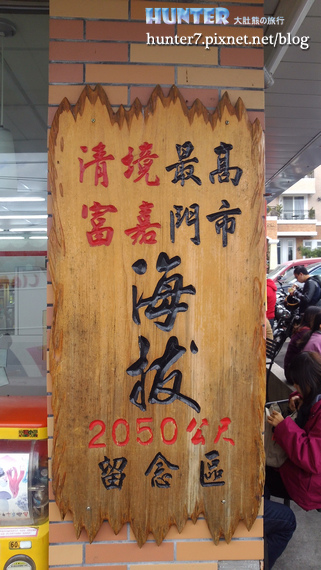 HUNTER 大肚熊の旅行
hunter7.pixnet.net/blog
清境最高
富嘉門市
海拔
2050公尺
留念區